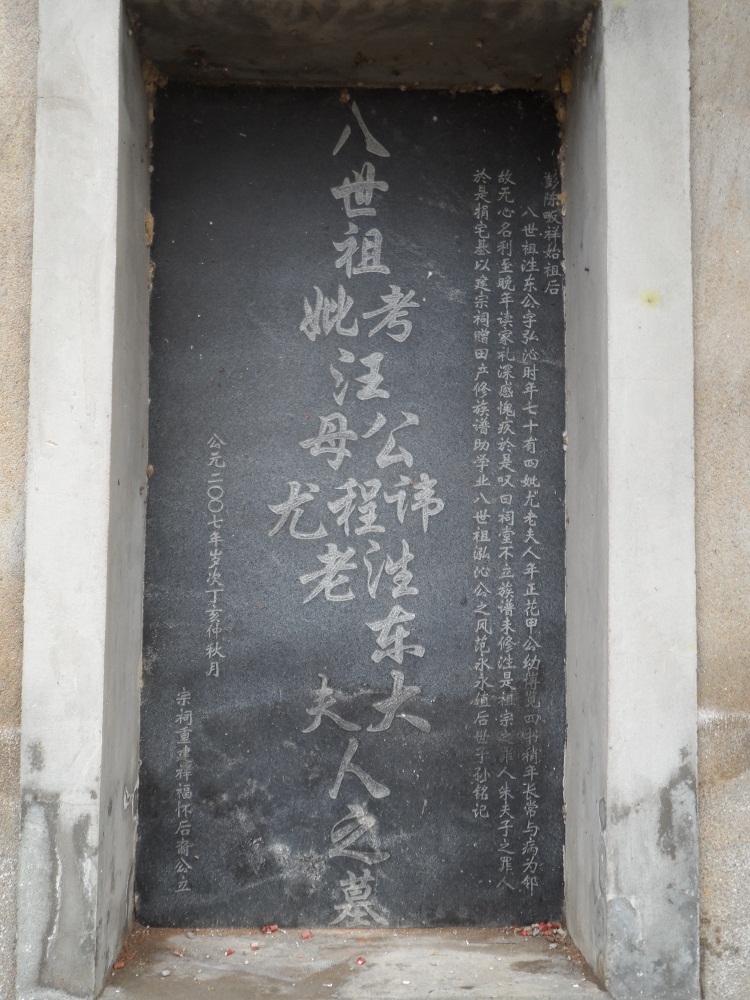 彭陈畈祥始祖后
八世祖泩东公字弘沁时年七十有四妣尤老夫人年正花甲公幼博览四书稍年长常与病为邻
故无心名利至晚年读家礼深感愧疚於是叹曰祠堂不立族谱未修泩是祖宗之罪人朱夫子之罪人
於是捐宅基以建宗祠赠田产修族谱助学业八世祖泓沁公之风范永永值后世子孙铭记
八世祖
考妣
汪
公母
讳程尤
泩老
东
大夫
人之墓
公元二〇〇七年岁次丁亥仲秋月
宗祠重建祥福怀后裔公立